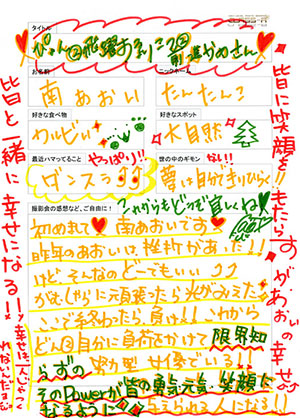 タイトル
ぴょん②飛躍あおい②
前進やめません
お名前
ニックネーム
南 あおい
たんたんこ
好きな食べ物
好きなスポット
カルビ
大自然
最近ハマってること
やっぱり!!
世の中のギモン
ない!!
ダンスぅ
夢は自分で切りひらく
撮影会の感想など、ご自由に!
これからもどうぞ宜しくね
初めまして 南あおいです
昨年のあおいは、挫折があった!!
けど、そんなのどーでもいい
がむしゃらに頑張ったら光がみえた
ここで終わったら、負け!!これから
どん②自分に負荷をかけて限界知
らずの
努力型 サイ女でいる!!
そのPowerが皆の勇気 元気 笑顔に
なるように
与えられる人になる!!
皆と一緒に幸せになる!!
幸せは一人じゃつくれないんだよ
皆に笑顔をもたらすがあおいの幸せ